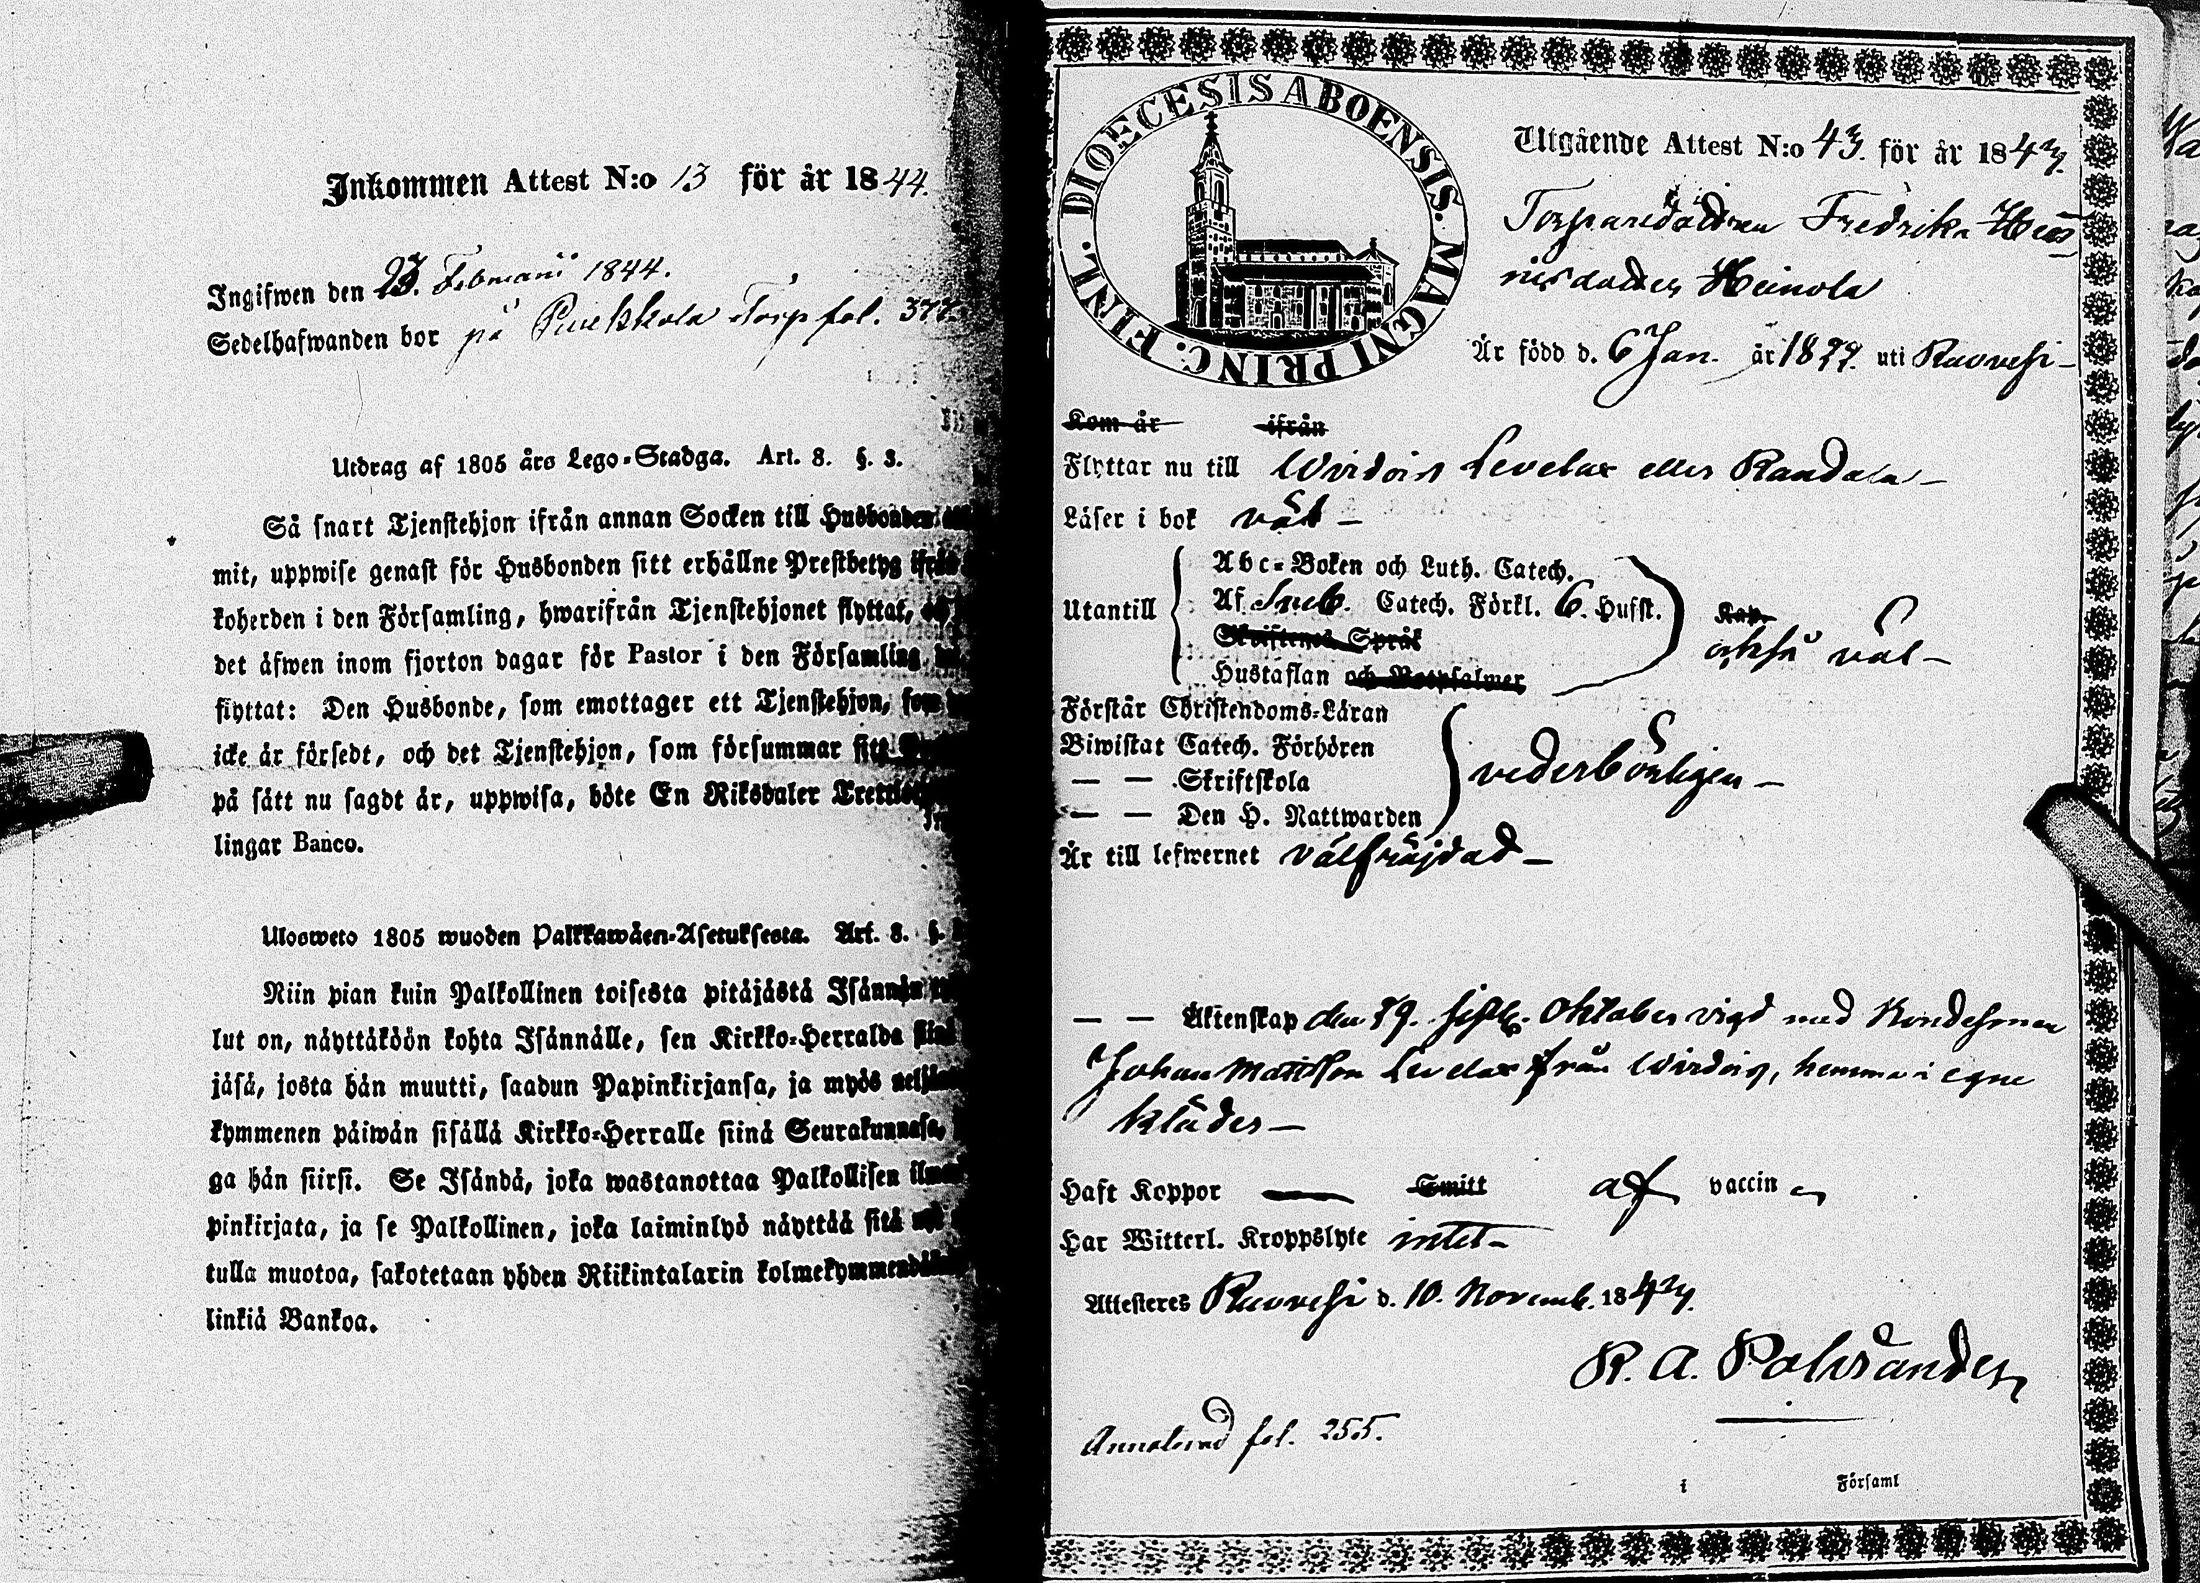 Inkommen Attest N:o 13 för år 1844.
Ingifwen den 23. Februarii 1844.
Sedelhafwanden bor på Torp fol. 377.
Utdrag af 1805 års Lego-Stadga. Art. 8. §. 3.
Så snart Tjenstehjon ifrån annan Socken till Husbonden
mit, uppwise genast för Husbonden sitt erhållne Prestbetyg ifrån
koherden i den Församling, hwarifrån Tjenstehjonet flyttat,
det äfwen inom fjorton dagar för Pastor i den Församling
flyttat: Den Husbonde, som emottager ett Tjenstehjon, som
icke är försedt, och det Tjenstehjon, som försummar sitt
på sätt nu sagdt är, uppwisa, böte En Riksdaler
lingar Banco.
Ulosweto 1805 wuoden Palkkawäen-Asetuksesta. Art. 8. §.
Niin pian kuin Palkollinen toisesta pitäjästä Isännän
lut on, näyttäköön kohta Isännälle, sen Kirkko-Herralda
jäsä, josta hän muutti, saadun Papinkirjansa, ja myös
kymmenen päiwän sisällä Kirkko-Herralle siinä Seurakunnasa,
ga hän siirsi. Se Isändä, joka wastanottaa Palkollisen ilman
pinkirjata, ja se Palkollinen, joka laiminlyö näyttää sitä
tulla muotoa, sakotetaan yhden Riikintalarin
linkiä Bankoa.
DIOECESIS ABOENSIS. MAGNI PRINC. FINL.
Utgående Attest N:o 43. för år 1843.
Torparedottren Fredrika
Heinola
Är född d. 6 Jan. år uti Ruovesi –
Kom år ifrån
Flyttar nu till Wirdois Levelax eller Raadala –
Läser i bok väl –
Utantill
Abc-Boken och Luth. Catech.
Af Sveb. Catech. Förkl. 6. Hufst.
Skriftenes Språk
Hustaflan och Botpsalmer
Kap.
också väl –
Förstår Christendoms-Läran
Biwistat Catech. Förhören
— — Skriftskola
— — Den H. Nattwarden
vederbörligen –
Är till lefwernet välfräjdad –
— — Äktenskap den 29. Oktober vigd med Bondesonen
Johan Mattsson Levelax från Wirdois, hemma i egne
kläder –
Haft Koppor — Smitt af vaccin
Har Witterl. Kroppslyte intet –
Attesteres Ruovesi d. 10. Novemb. 1843.
R. A. Polviander
fol. 255.
i Församl